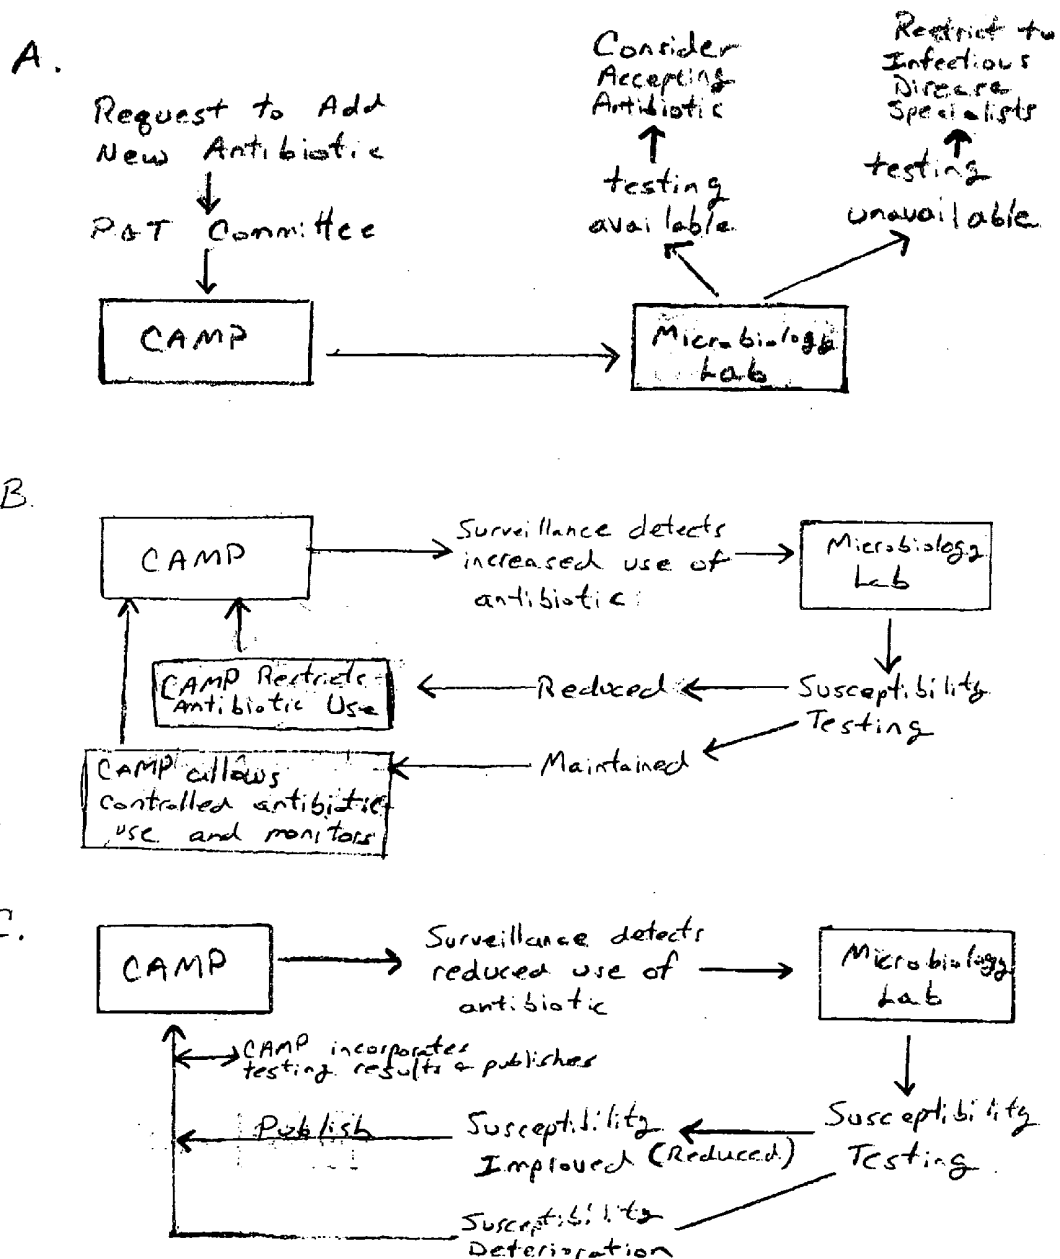 A.
Request to Add
New Antibiotic
P&T Committee
CAMP
Microbiology
Lab
testing
available
Consider
Accepting
Antibiotic
testing
unavailable
Restrict to
Infectious
Disease
Specialists
B.
CAMP
Surveillance detects
increased use of
antibiotic
Microbiology
Lab
Susceptibility
Testing
Reduced
CAMP Restricts
Antibiotic Use
Maintained
CAMP allows
controlled antibiotic
use and monitors
C.
CAMP
Surveillance detects
reduced use of
antibiotic
Microbiology
Lab
Susceptibility
Testing
CAMP incorporates
testing results & publishes
Publish
Susceptibility
Improved (Reduced)
Susceptibility
Deterioration